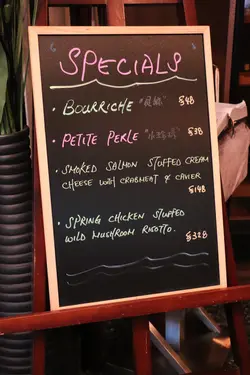 SPECIALS
• BOURRICHE $48
• PETITE PERLE $38
• SMOKED SALMON STUFFED CREAM
CHEESE WITH CRABMEAT & CAVIER
$148
• SPRING CHICKEN STUFFED
WILD MUSHROOM RISOTTO. $328